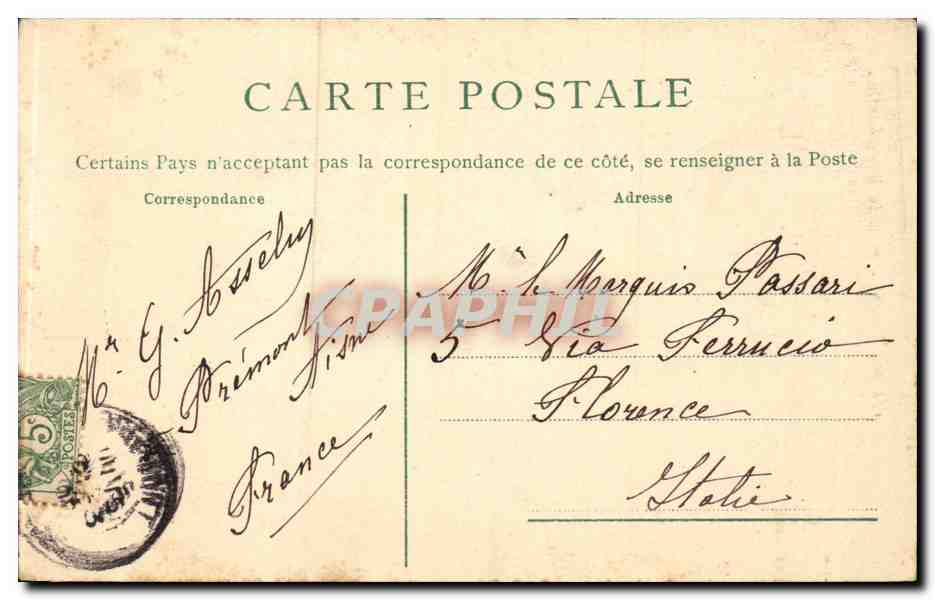 CARTE POSTALE
Certains Pays n'acceptant pas la correspondance de ce côté, se renseigner à la Poste
Correspondance
Adresse
Mr G. Asselin
Prémont
Aisne
France
Mr le Marquis Passari
5 Via Ferrucio
Florence
Italie
5c
POSTES
CPAPHIL